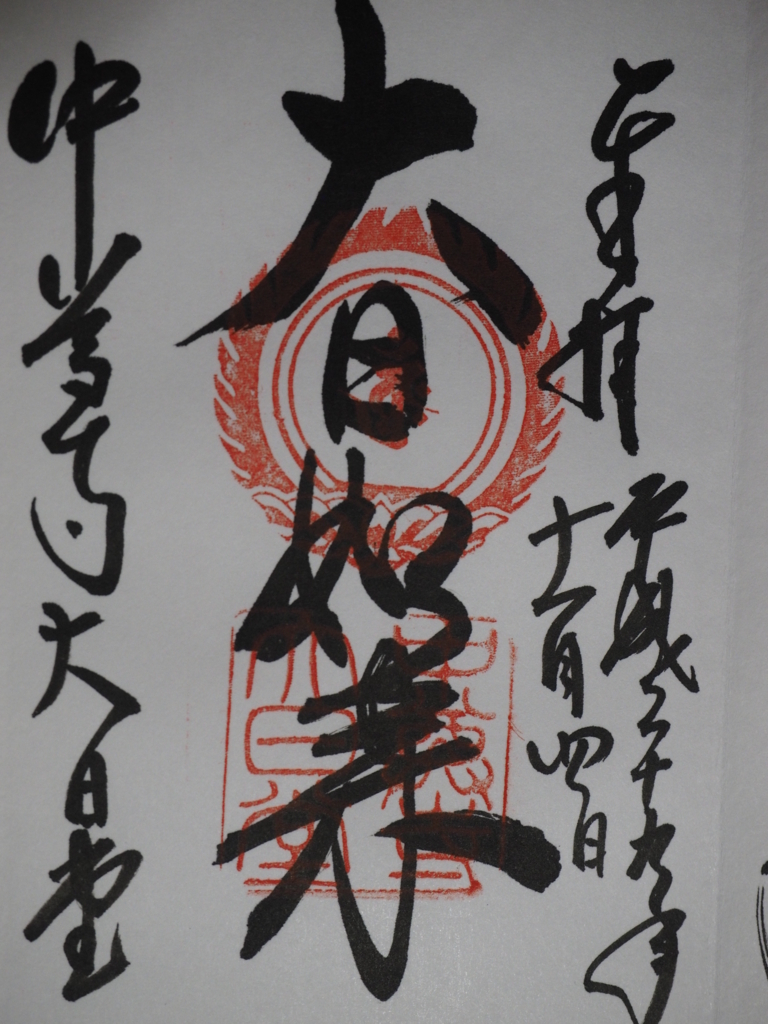 奉拝
平成二十九年
十一月四日
大日如来
中尊寺大日堂